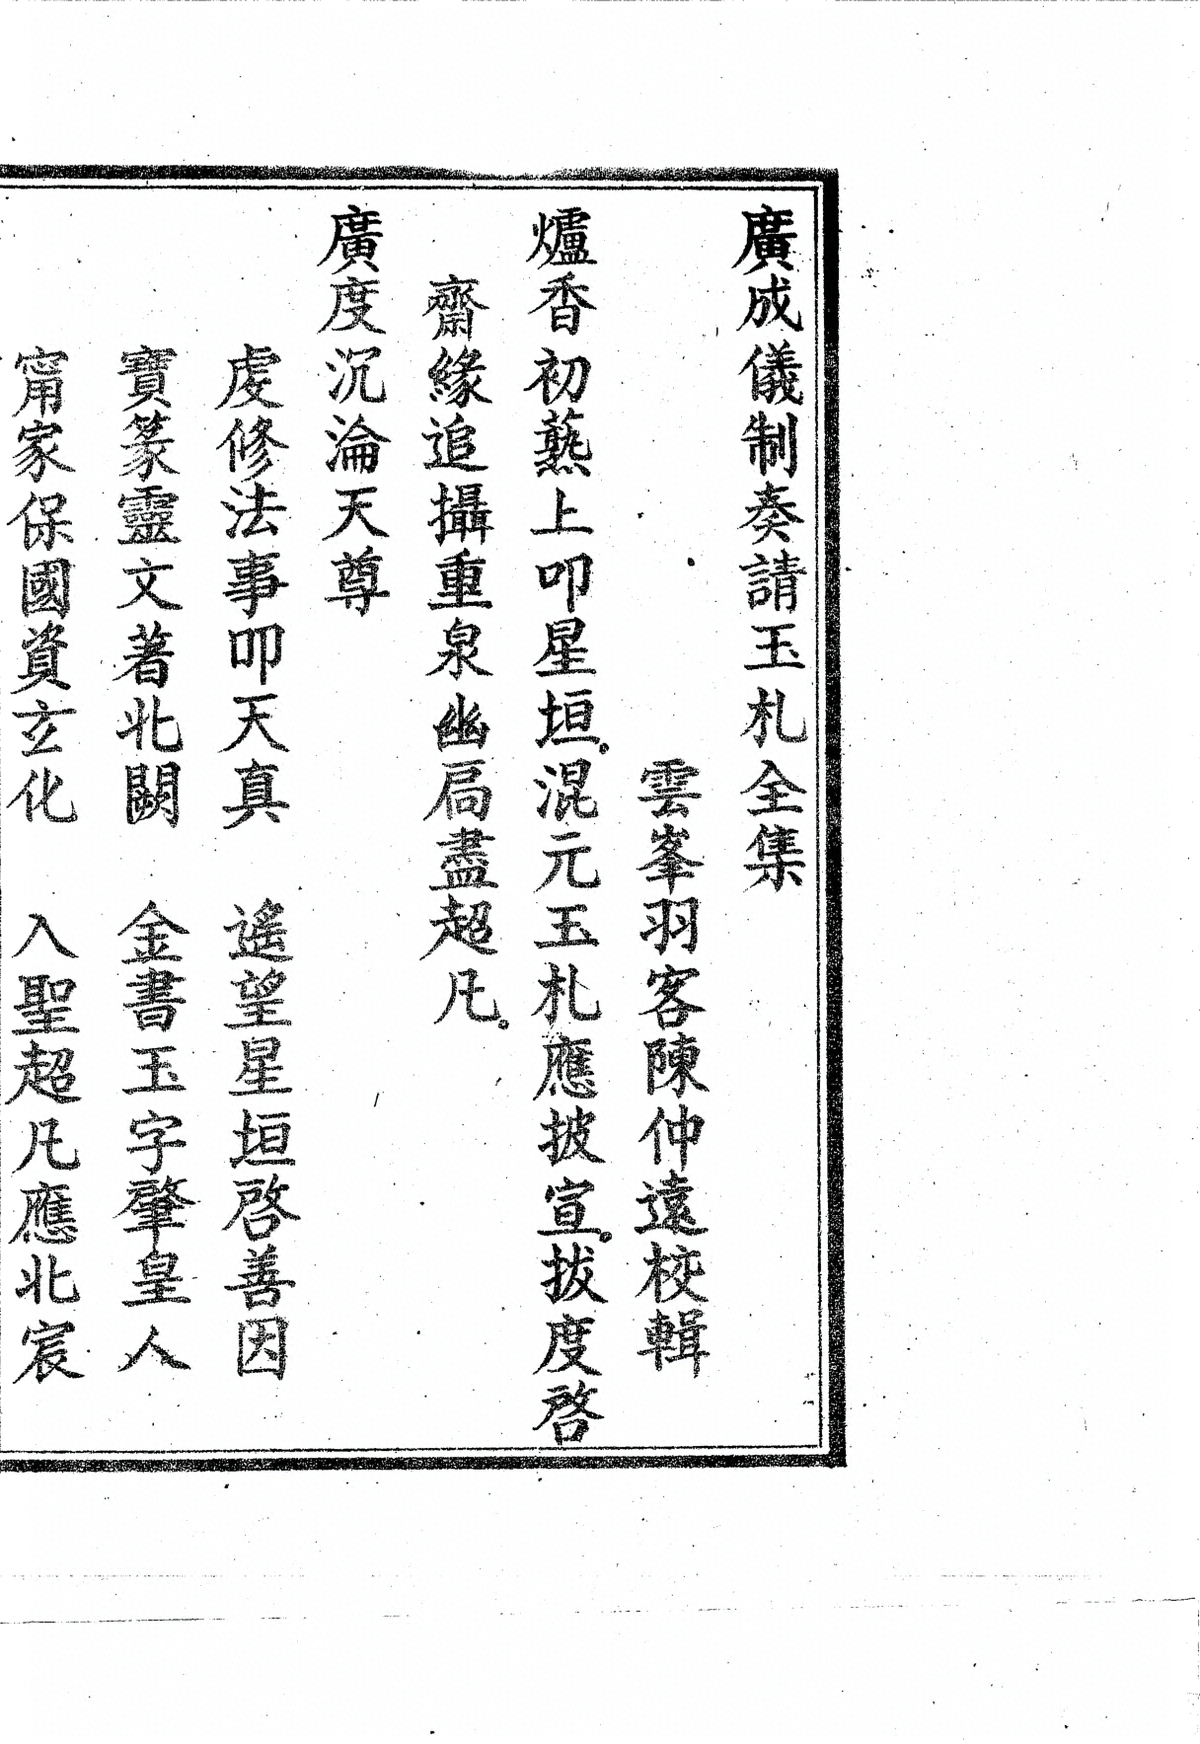 廣成儀制奏請玉札全集
雲峯羽客陳仲遠校輯
爐香初爇上叩星垣。混元玉札應披宣。拔度啓
齋緣追攝重泉幽局盡超凡。
廣度沉淪天尊
虔修法事叩天真　遙望星垣啓善因
寶篆靈文著北闕　金書玉字肇皇人
甯家保國資玄化　入聖超凡應北宸